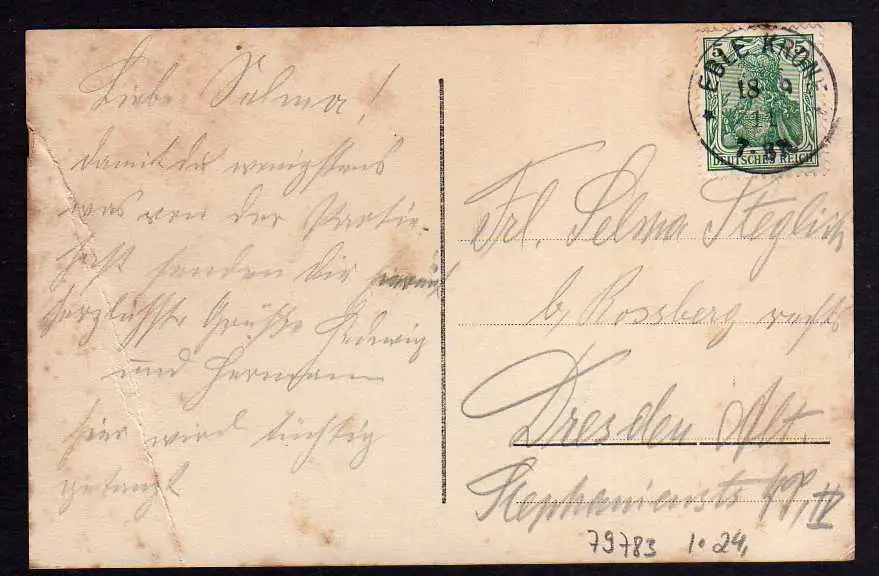 Liebe Selma!
Damit du wenigstens
was von der Partie
hast senden Dir
herzlichste Grüße Hedwig
und Hermann
hier wird tüchtig
getanzt
EDLE KRONE
18 9
11
7-8N
DEUTSCHES REICH
Frl. Selma Steglich
b/ Rossberg rechts
Dresden Alt.
Stephanienstr IV
79783 1.24,